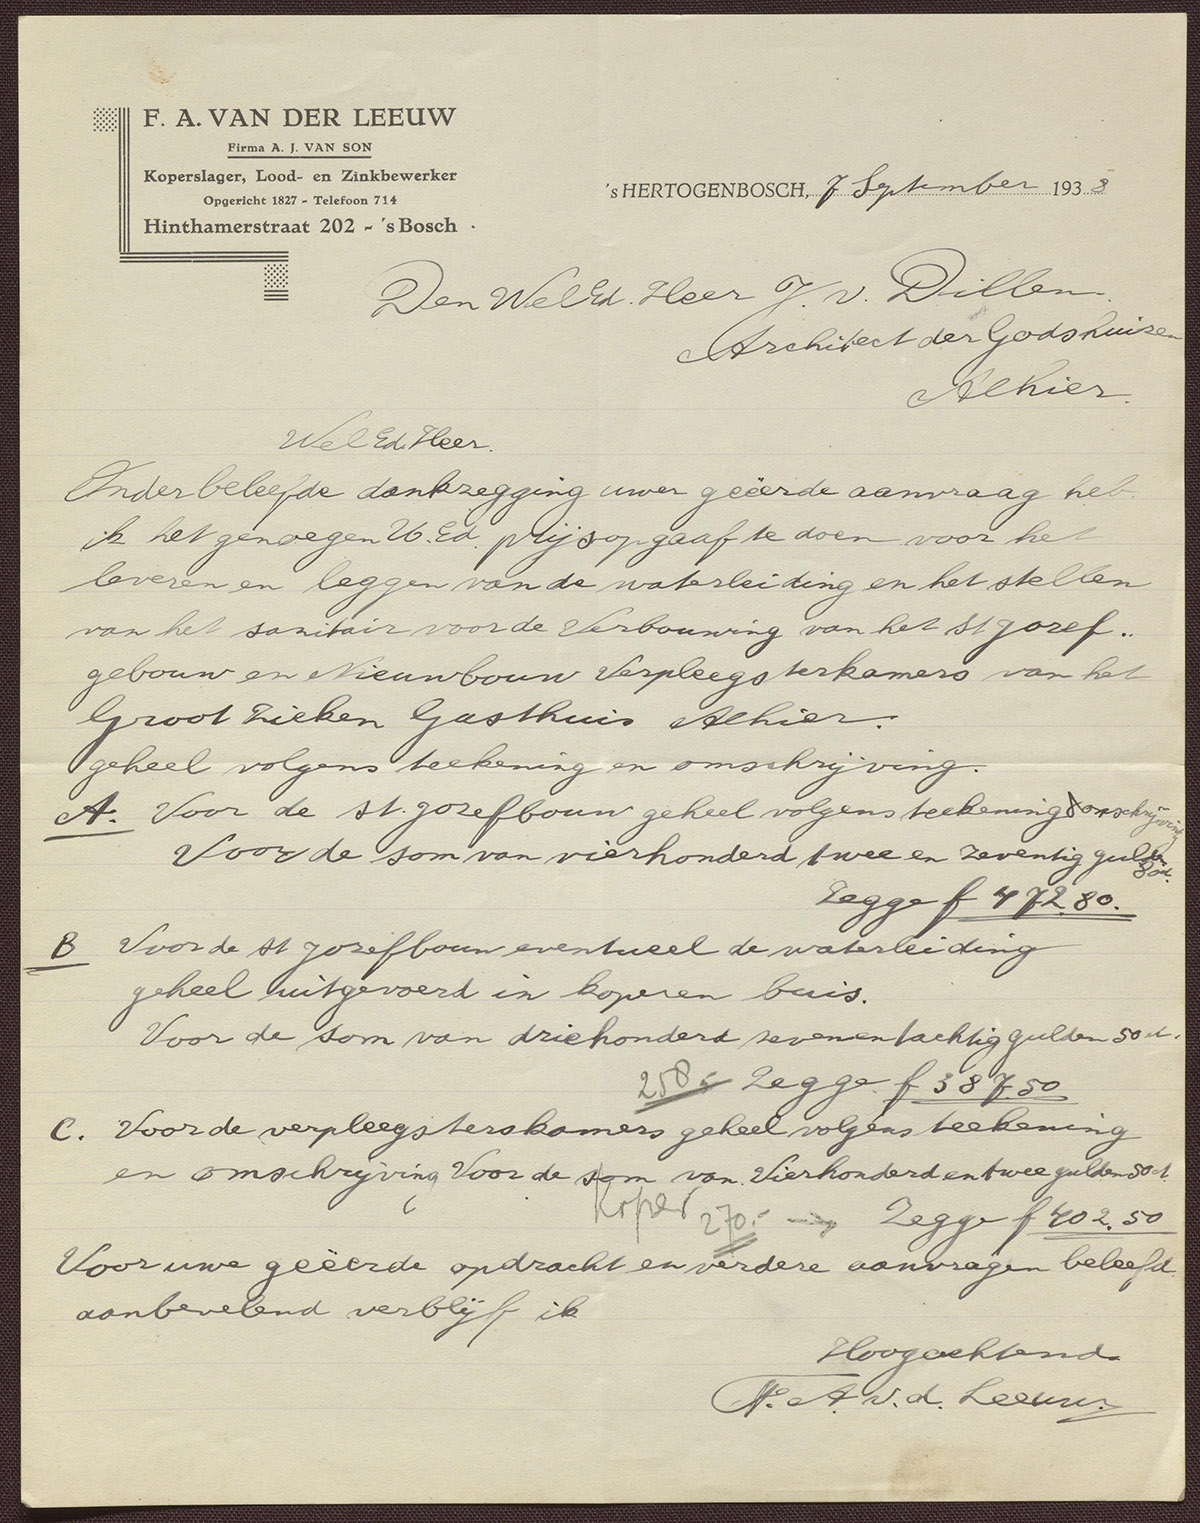 F. A. VAN DER LEEUW
Firma A. J. VAN SON
Koperslager, Lood- en Zinkbewerker
Opgericht 1827 - Telefoon 714
Hinthamerstraat 202 - 's Bosch
's HERTOGENBOSCH, 7 September 1938
Den WelEd. Heer J. v. Dillen.
Architect der Godshuizen
Alhier.
Wel Ed. Heer.
Onder beleefde dankzegging uwer geëerde aanvraag heb
ik het genoegen U. Ed. prijsopgaaf te doen voor het
leveren en leggen van de waterleiding en het stellen
van het sanitair voor de Verbouwing van het St Jozef..
gebouw en Nieuwbouw Verpleegsterkamers van het
Groot Zieken Gasthuis Alhier.
geheel volgens teekening en omschrijving.
A. Voor de St. Jozefbouw geheel volgens teekening & omschrijving
Voor de som van vierhonderd twee en zeventig gulden 80 ct.
Zegge f 472.80.
B Voor de St Jozefbouw eventueel de waterleiding
geheel uitgevoerd in koperen buis.
Voor de som van driehonderd zevenentachtig gulden 50 ct.
258.- Zegge f 387.50
C. Voor de verpleegsterskamers geheel volgens teekening
en omschrijving Voor de som van Vierhonderd en twee gulden 50 ct.
Koper 270.- → Zegge f 402.50
Voor uwe geëerde opdracht en verdere aanvragen beleefd
aanbevelend verblijf ik
Hoogachtend.
F. A. v. d. Leeuw.